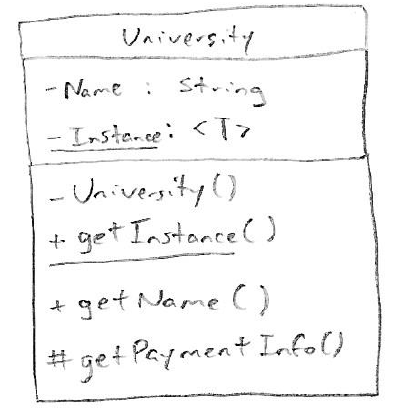 University
- Name : String
- Instance : <T>
- University()
+ getInstance()
+ getName()
# getPaymentInfo()